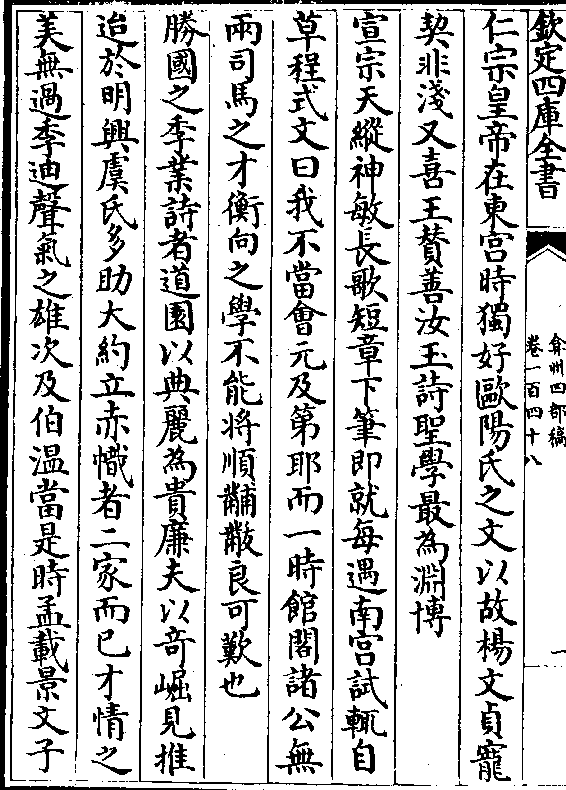 欽定四庫全書
弇州四部稿
卷一百四十八
一
仁宗皇帝在東宮時獨好歐陽氏之文以故楊文貞寵
契非淺又喜王贊善汝玉詩聖學最為淵博
宣宗天縱神敏長歌短章下筆即就每遇南宮試輒自
草程式文曰我不當會元及第耶而一時館閣諸公無
兩司馬之才衡向之學不能將順黼黻良可歎也
勝國之季業詩者道園以典麗為貴廉夫以竒崛見推
迨於明興虞氏多助大約立赤幟者二家而已才情之
美無過季迪聲氣之雄次及伯溫當是時孟載景文子